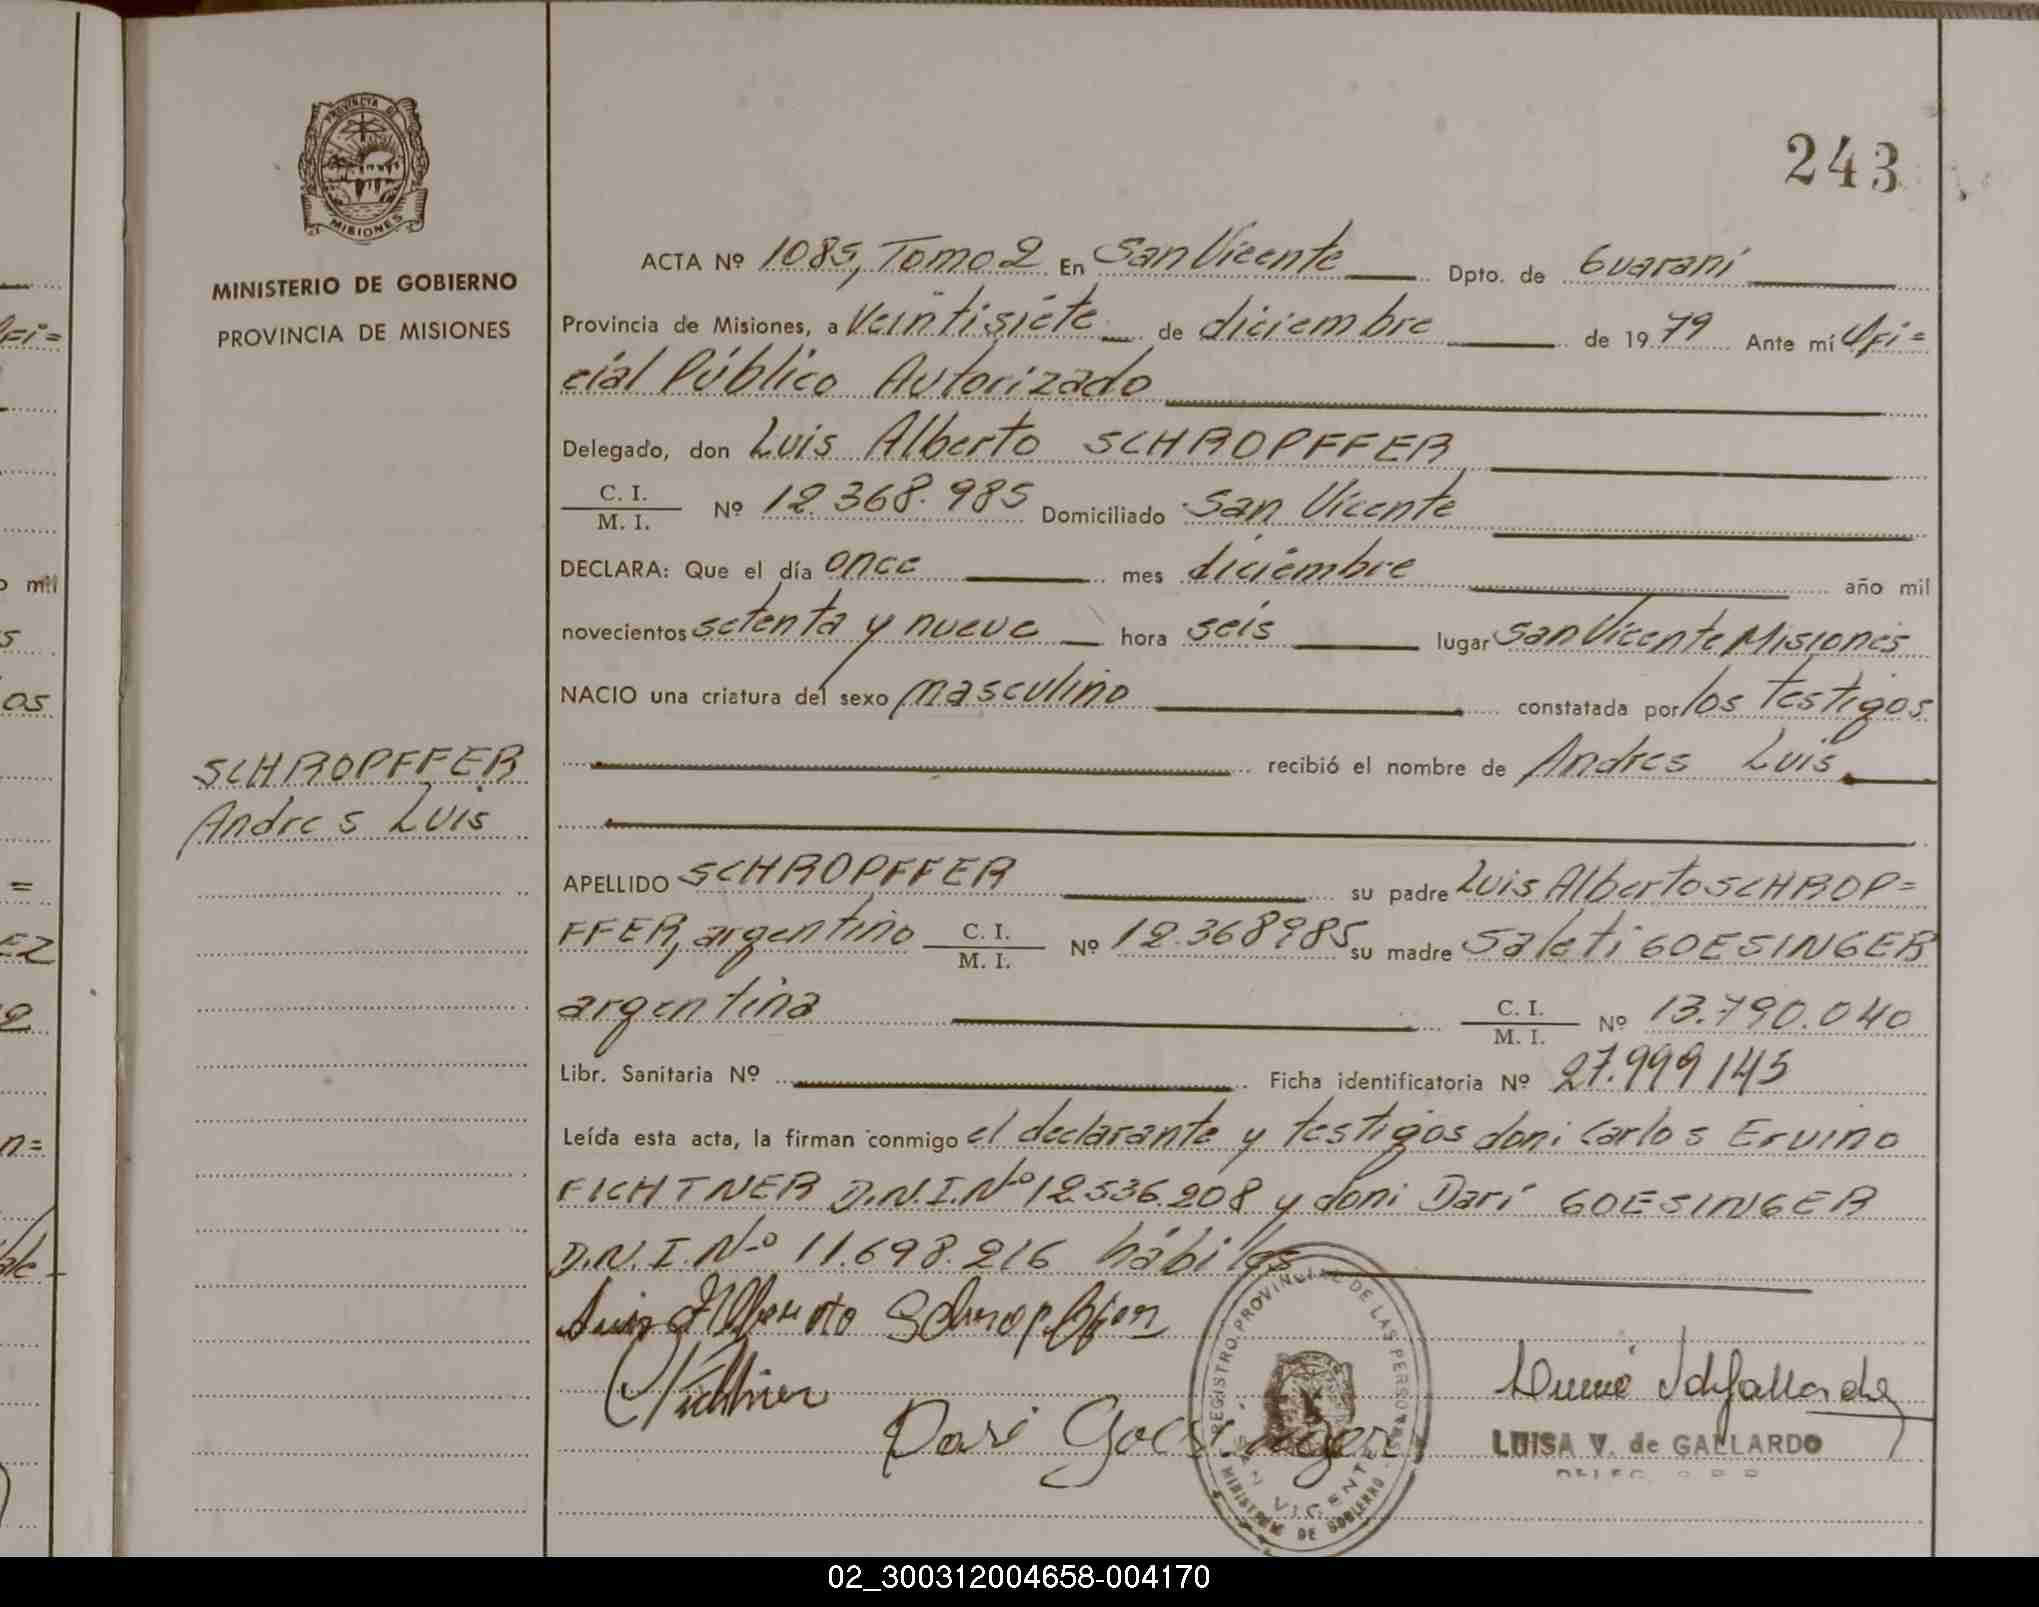 PROVINCIA DE
MISIONES
MINISTERIO DE GOBIERNO
PROVINCIA DE MISIONES
SCHROPFFER
Andres Luis
243
ACTA Nº 1085, Tomo 2 En San Vicente Dpto. de Guaraní
Provincia de Misiones, a Veintisiete de diciembre de 1979 Ante mí Ofi=
cial Público Autorizado
Delegado, don Luis Alberto SCHROPFFER
C. I. / M. I. Nº 12.368.985 Domiciliado San Vicente
DECLARA: Que el día once mes diciembre año mil
novecientos setenta y nueve hora seis lugar San Vicente Misiones
NACIO una criatura del sexo masculino constatada por los testigos
recibió el nombre de Andres Luis
APELLIDO SCHROPFFER su padre Luis Alberto SCHROP=
FFER, argentino C. I. / M. I. Nº 12.368985 su madre Saleti GOESINGER
argentina C. I. / M. I. Nº 13.790.040
Libr. Sanitaria Nº Ficha identificatoria Nº 27.999145
Leída esta acta, la firman conmigo el declarante y testigos don: Carlos Ervino
FICHTNER D.N.I.Nº 12.536.208 y don: Darí GOESINGER
D.N.I.Nº 11.698.216 hábiles
Luis Alberto Schropffer
Fichtner
Dari Goesinger
REGISTRO PROVINCIAL DE LAS PERSONAS
SAN VICENTE
MINISTERIO DE GOBIERNO
LUISA V. de GALLARDO
02_300312004658-004170